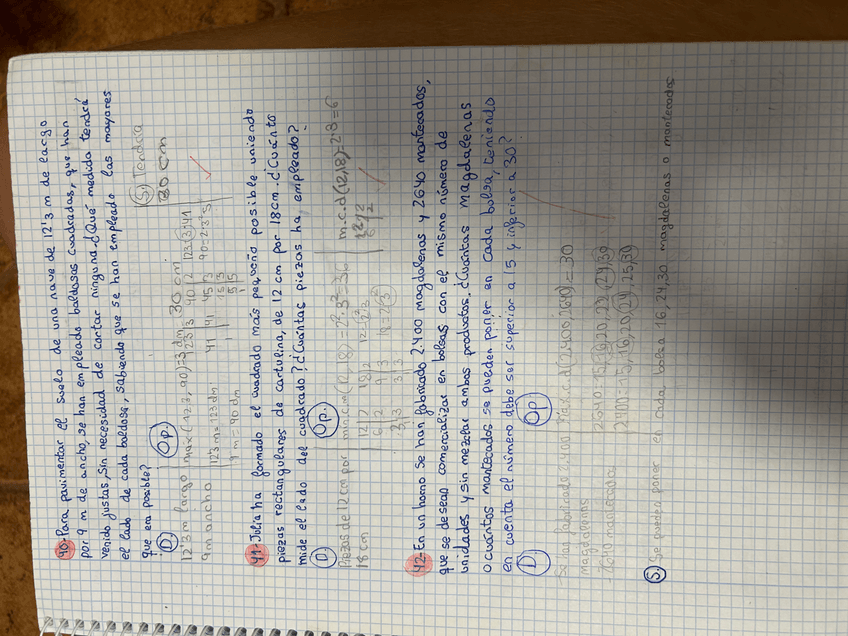 40-Para pavimentar el suelo de una nave de 12'3 m de largo
por 9 m de ancho, se han empleado baldosas cuadradas, que han
venido justas, sin necesidad de cortar ninguna. ¿Qué medida tendrá
el lado de cada baldosa, sabiendo que se han empleado las mayores
que era posible?
D Op. S) Tendría
12'3 m largo max(123,90)=3 dm = 30 cm 30 cm
9 m ancho
12'3 m = 123 dm
9 m = 90 dm
41-Julia ha formado el cuadrado más pequeño posible uniendo
piezas rectangulares de cartulina, de 12 cm por 18 cm. ¿Cuánto
mide el lado del cuadrado? ¿Cuántas piezas ha empleado?
D Op.
Piezas de 12 cm por m.c.m(12,18)=2²·3²=36 m.c.d(12,18)=2·3=6
18 cm
42-En un horno se han fabricado 2.400 magdalenas y 2640 mantecados,
que se desean comercializar en bolsas con el mismo número de
unidades y sin mezclar ambos productos. ¿Cuántas magdalenas
o cuántos mantecados se pueden poner en cada bolsa, teniendo
en cuenta el número debe ser superior a 15 y inferior a 30?
D Op
Se han fabricado 2.400 max.c.d(2400,2640)=30
magdalenas
2640 mantecados
S Se pueden poner en cada bolsa 16, 24, 30 magdalenas o mantecados